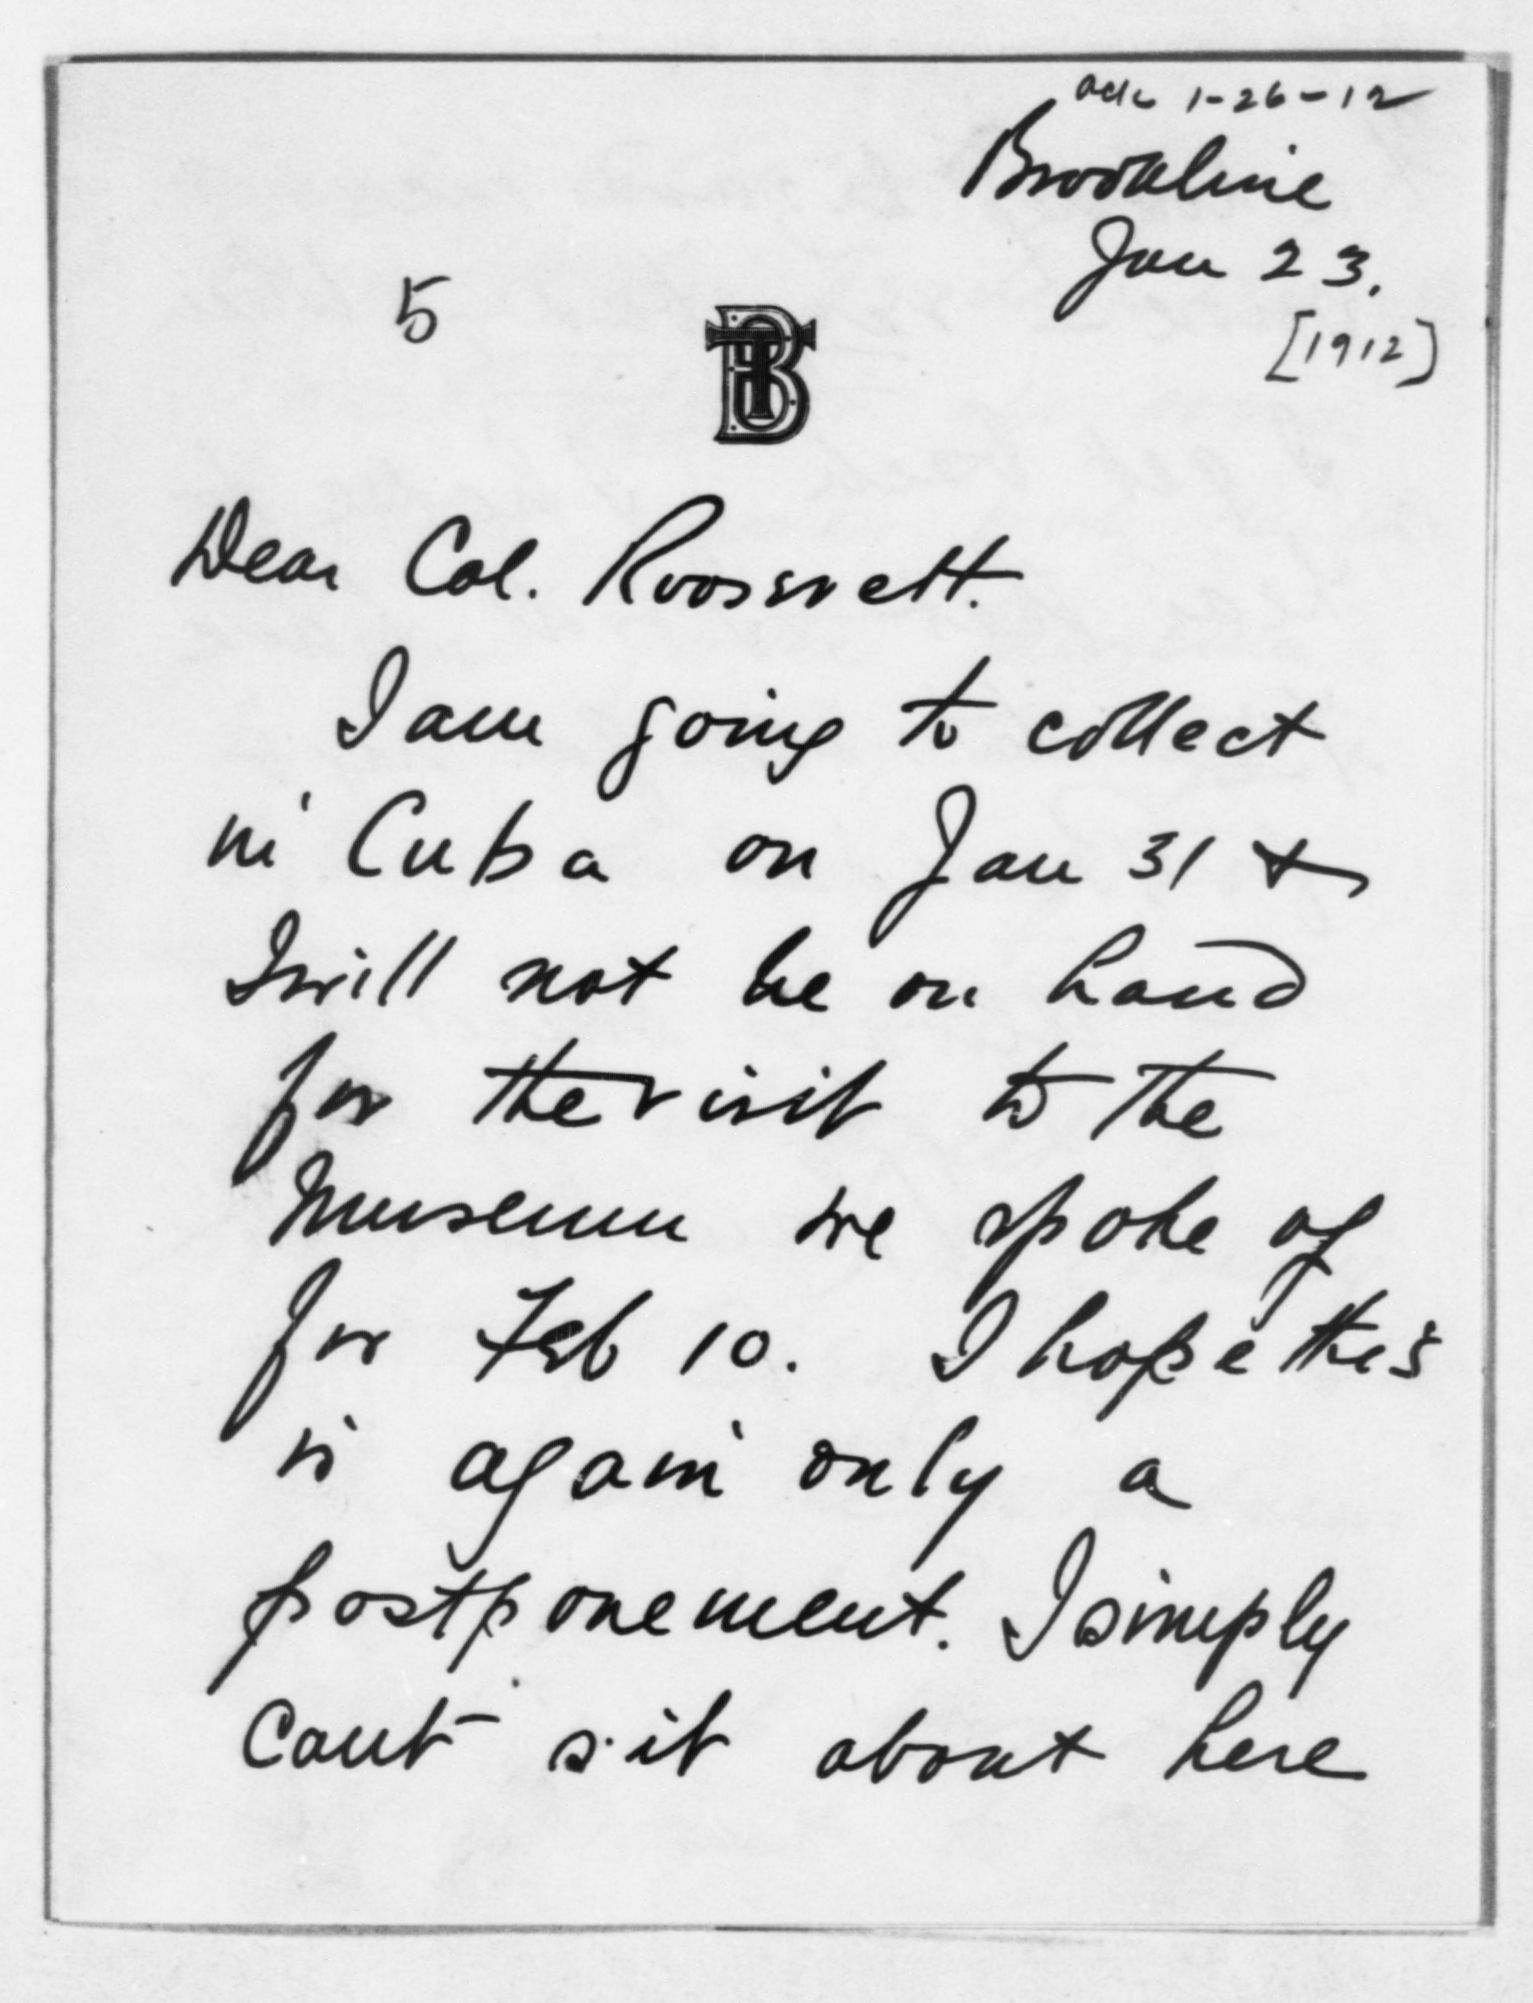 ack 1-26-12
Brookline
Jan 23.
[1912]
5
Dear Col. Roosevelt.
I am going to collect
in Cuba on Jan 31 &
I will not be on hand
for the visit to the
Museum we spoke of
for Feb 10. I hope this
is again only a
postponement. I simply
cant sit about here